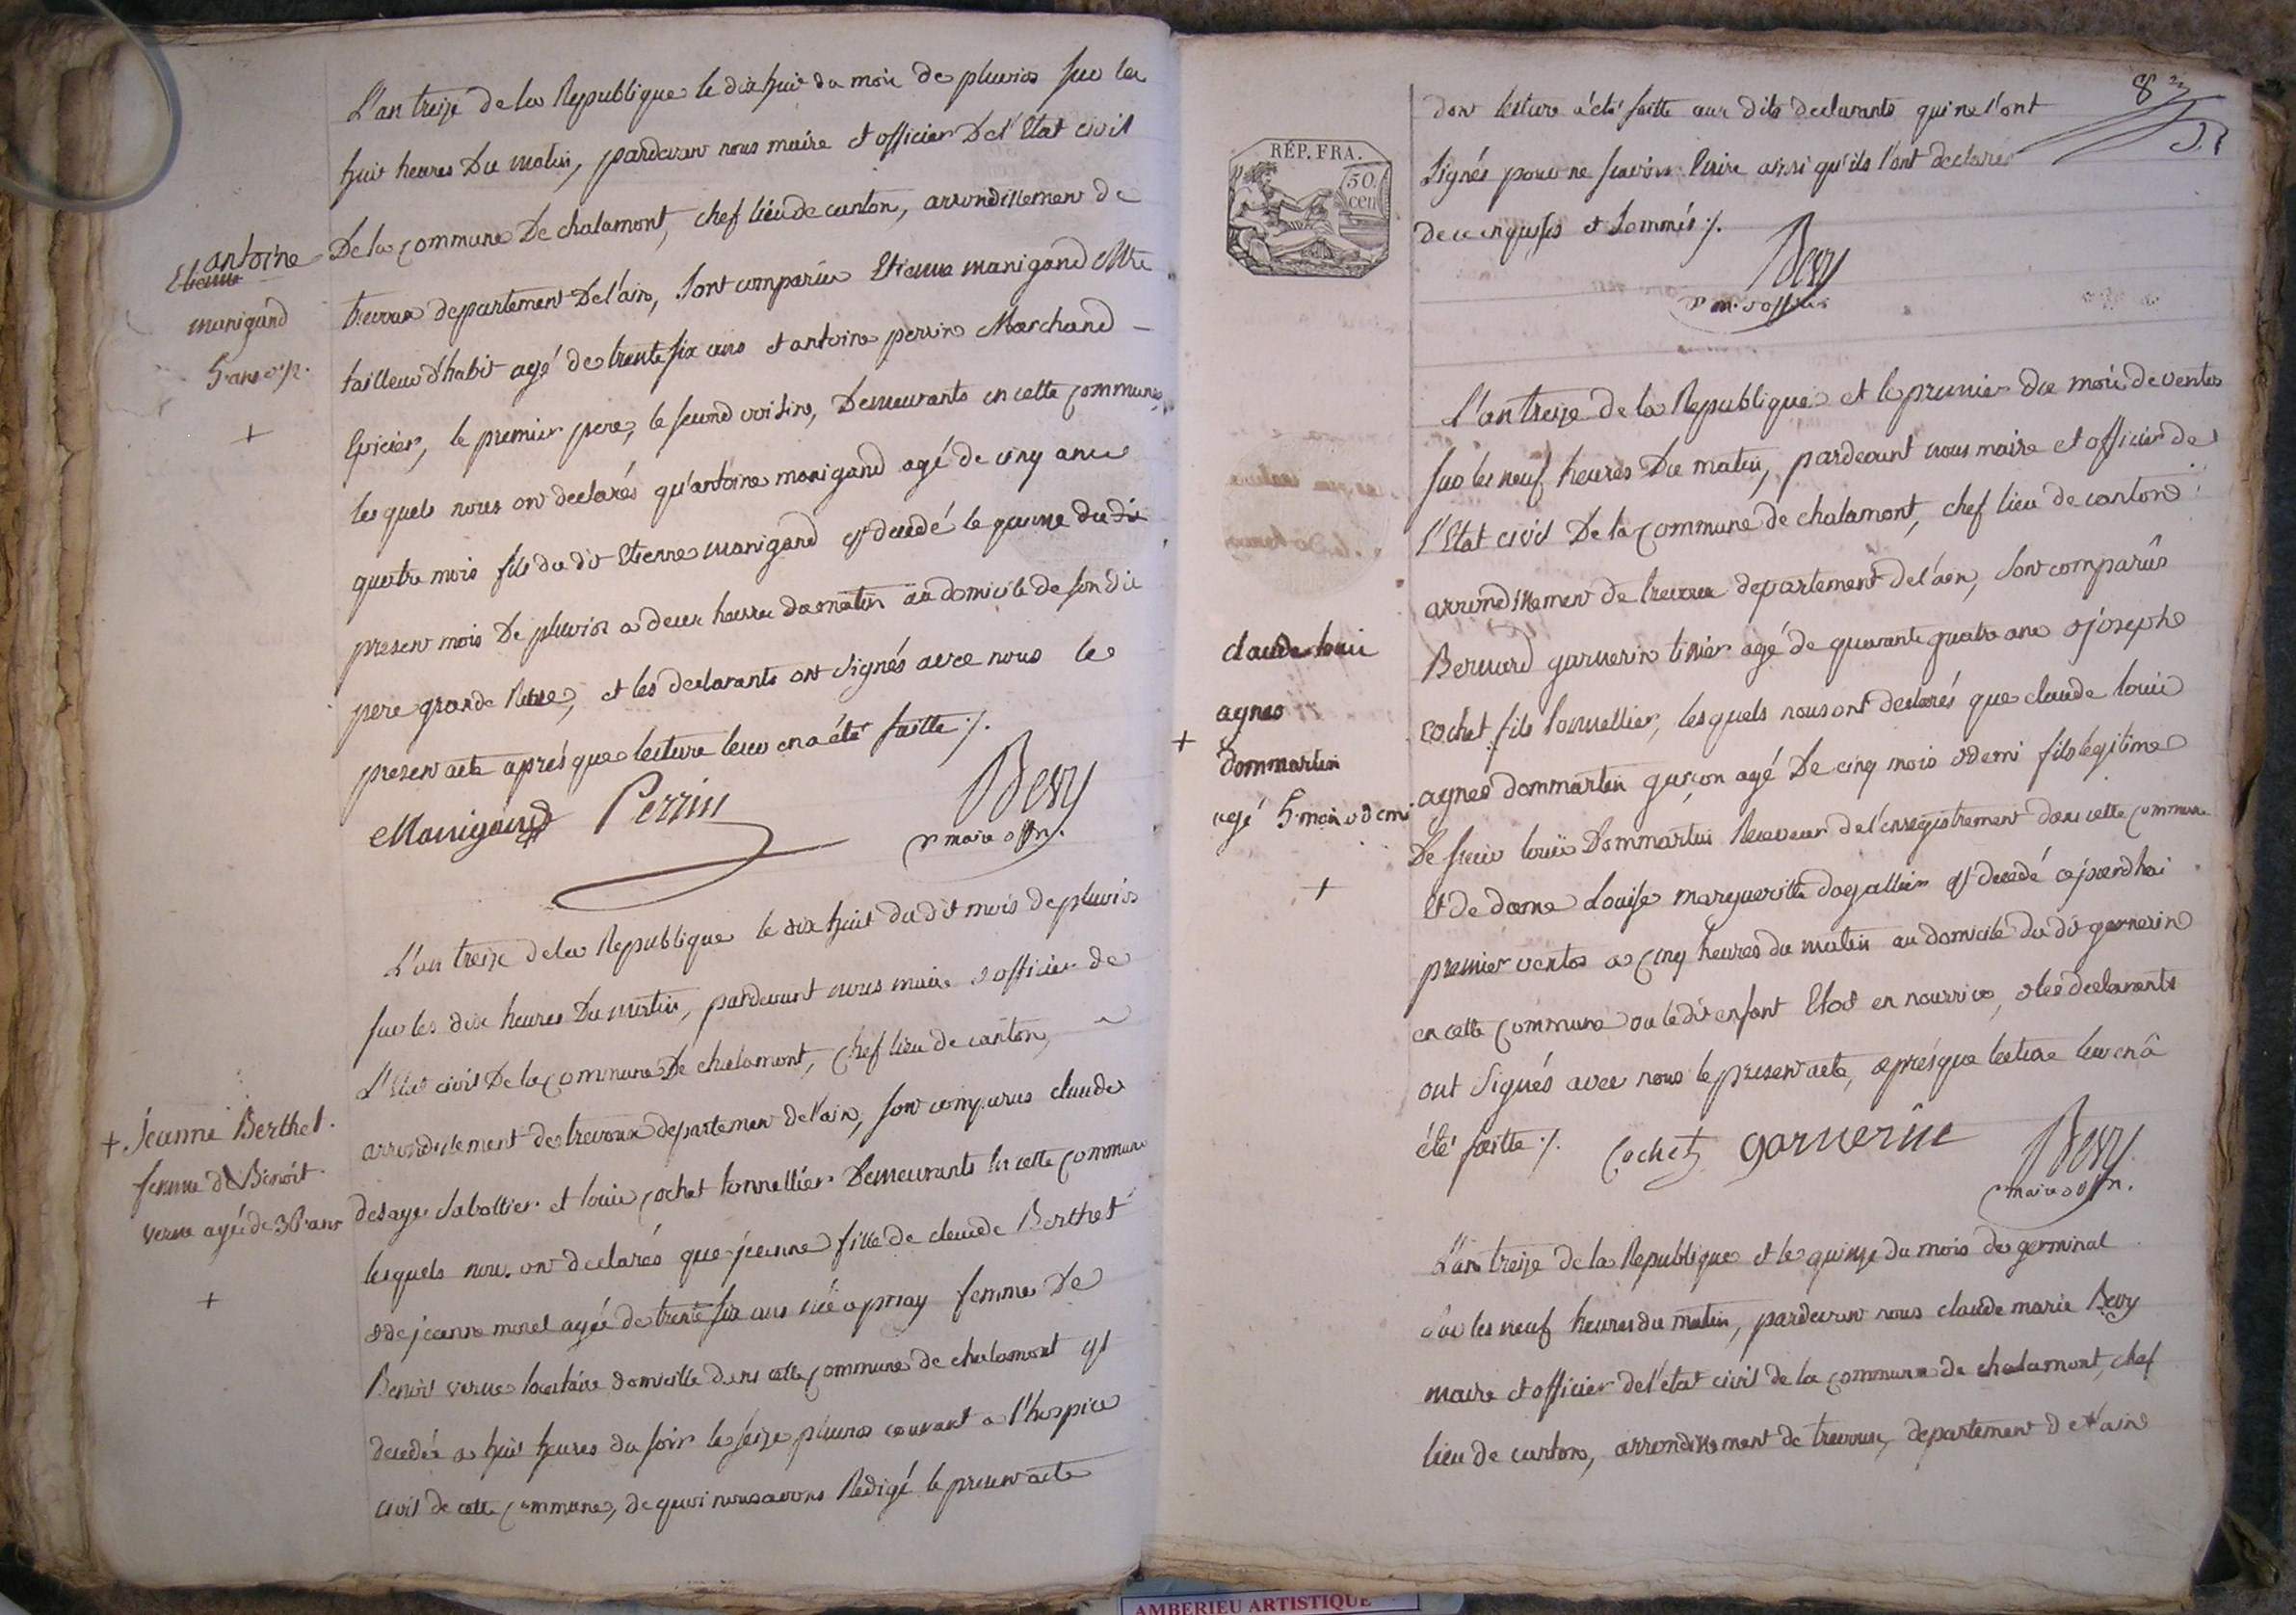 L'an treize de la Republique le dix huit du mois de pluvios sur les
huit heures Du matin, pardevant nous maire et officier De l'Etat civil
De la commune De chalamont, chef lieu de canton, arrondissement de
trevoux departement De l'ain, sont comparus Etienne manigand Mtre
tailleur d'habit agé de trente six ans et antoine perrin Marchand
Epicier, le premier pere, le second voisin, Demeurants en cette commune,
les quels nous ont declarés qu'antoine manigand agé de cinq ans
quatre mois fils du dit Etienne manigand est decedé le quinze du dit
present mois De pluvios a deux heures du matin au domicile de son dit
pere grande Rue, et les declarants ont signés avec nous le
present acte aprés que lecture leur en a été faitte /.
Manigand Perrin Bevy
maire offr.
antoine
Etienne
manigand
5 ans
+
L'an treize de la Republique le dix huit du dit mois de pluvios
sur les dix heures Du matin, pardevant nous maire & officier de
L'Etat civil De la commune De chalamont, chef lieu de canton,
arrondissement de trevoux departement de l'ain, sont comparus claude
desaye sabottier et louis cochet tonnellier Demeurants en cette commune
lesquels nous ont declarés que jeanne fille de claude Berthet
& de jeanne morel agée de trente six ans née a priay femme De
Benoit verne locataire domicillé dans cette commune de chalamont est
decedée a huit heures du soir le seize pluvios courant a l'hospice
civil de cette commune, de quoi nous avons Redigé le present acte
+ Jeanne Berthet
femme de Benoit
verne agée de 36 ans
+
83
dont lecture a été faitte aux dits declarants qui ne l'ont
signés pour ne savoir Ecrire ainsi qu'ils l'ont declarés
de ce enquises et sommés /.
Bevy
m. & officier
RÉP. FRA.
50
cen
L'an treize de la Republique et le premier du mois de ventos
sur les neuf heures Du matin, pardevant nous maire et officier de
l'Etat civil De la commune de chalamont, chef lieu de canton
arrondissement de trevoux departement de l'ain, sont comparûs
Bernard garnerin tissier agé de quarante quatre ans & joseph
cochet fils tonnellier, lesquels nous ont declarés que claude louis
agnes dommartin garçon agé De cinq mois & demi fils legitime
De sieur louis Dommartin Receveur de l'enregistrement dans cette commune
Et de dame Louise margueritte dagallier est decedé ajourdhui
premier ventos a cinq heures du matin au domicile du dit garnerin
en cette commune ou le dit enfant Etoit en nourrice, & les declarants
ont signés avec nous le present acte, aprés que lecture leur en â
été faitte /. Cochet garnerin Bevy
maire & offr.
claude louis
agnes
+
dommartin
agé 5 mois & demi
+
L'an treize de la Republique et le quinze du mois de germinal
sur les neuf heures du matin, pardevant nous claude marie Bevy
maire et officier de l'etat civil de la commune de chalamont, chef
lieu de canton, arrondissement de trevoux, departement de l'ain
AMBERIEU ARTISTIQUE